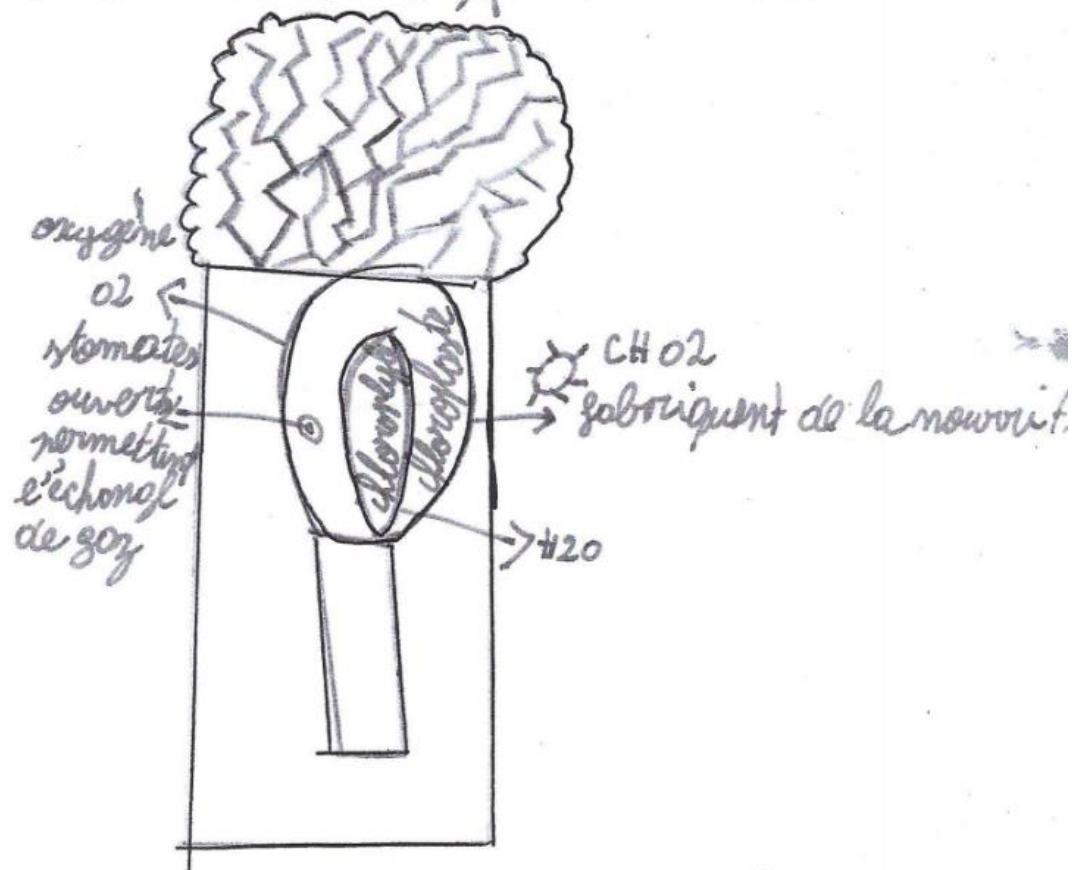 oxygène
O2
stomates
ouverts
permettng
l'échange
de gaz
chloroplaste
CHO2
fabriquent de la nourrit
H2O